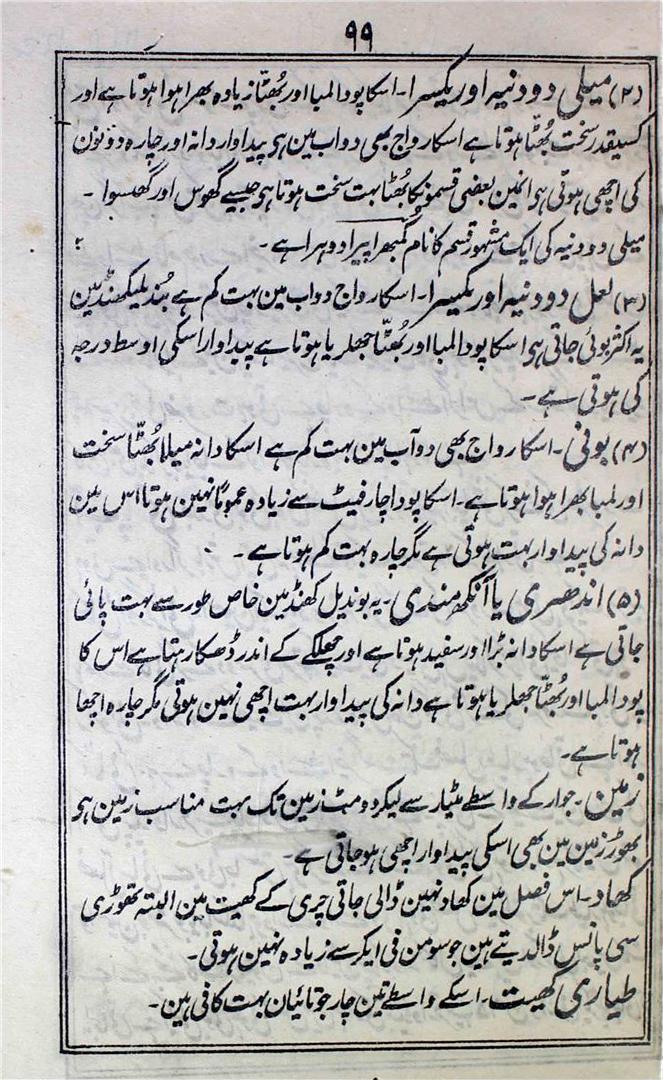 ۹۹
(۲) میلی دودنیہ اور یکسرا۔ اسکا پودا لمبا اور بُھٹّا زیادہ بھرا ہوا ہوتا ہے اور
کسیقدر سخت بُھٹّا ہوتا ہے اسکا رواج بھی دواب مین ہی پیداوار دانہ اور چارہ دونون
کی اچھی ہوتی ہی انمین بعضی قسمونکا بُھٹا بہت سخت ہوتا ہی جیسے گھوس اور گھسوا ۔
میلی دودنیہ کی ایک مشہور قسم کا نام گمبھرا پیرا دوہرا ہے ۔
(۳) لعل دودنیہ اور یکسرا۔ اسکا رواج دواب مین بہت کم ہے بُندیلکھنڈ مین
یہ اکثر بوئی جاتی ہی اسکا پودا لمبا اور بُھٹّا جھلریا ہوتا ہے پیداوار اسکی اوسط درجہ
کی ہوتی ہے ۔
(۴) پونی۔ اسکا رواج بھی دوآب مین بہت کم ہے اسکا دانہ میلا بُھٹّا سخت
اور لمبا بھرا ہوا ہوتا ہے۔ اسکا پودا چار فیٹ سے زیادہ عموماً نہین ہوتا اس مین
دانہ کی پیداوار بہت ہوتی ہے مگر چارہ بہت کم ہوتا ہے ۔
(۵) اندھری یا آنکھ مندری۔ یہ بوندیل کھنڈ مین خاص طور سے بہت پائی
جاتی ہے اسکا دانہ بڑا اور سفید ہوتا ہے اور چھلکے کے اندر ڈھکا رہتا ہے اس کا
پودا لمبا اور بُھٹّا جھلریا ہوتا ہے دانہ کی پیداوار بہت اچھی نہین ہوتی مگر چارہ اچھا
ہوتا ہے۔
زمین۔ جوار کے واسطے مٹیار سے لیکر دومٹ زمین تک بہت مناسب زمین ہی
بھوڑ زمین مین بھی اسکی پیداوار اچھی ہوجاتی ہے۔
کھاد۔ اس فصل مین کھاد نہین ڈالی جاتی چری کے کھیت مین البتہ تھوڑی
سی پانس ڈالدیتے ہین جو سو من فی ایکر سے زیادہ نہین ہوتی۔
طیاری کھیت۔ اسکے واسطے تین چار جوتائیان بہت کافی ہین۔